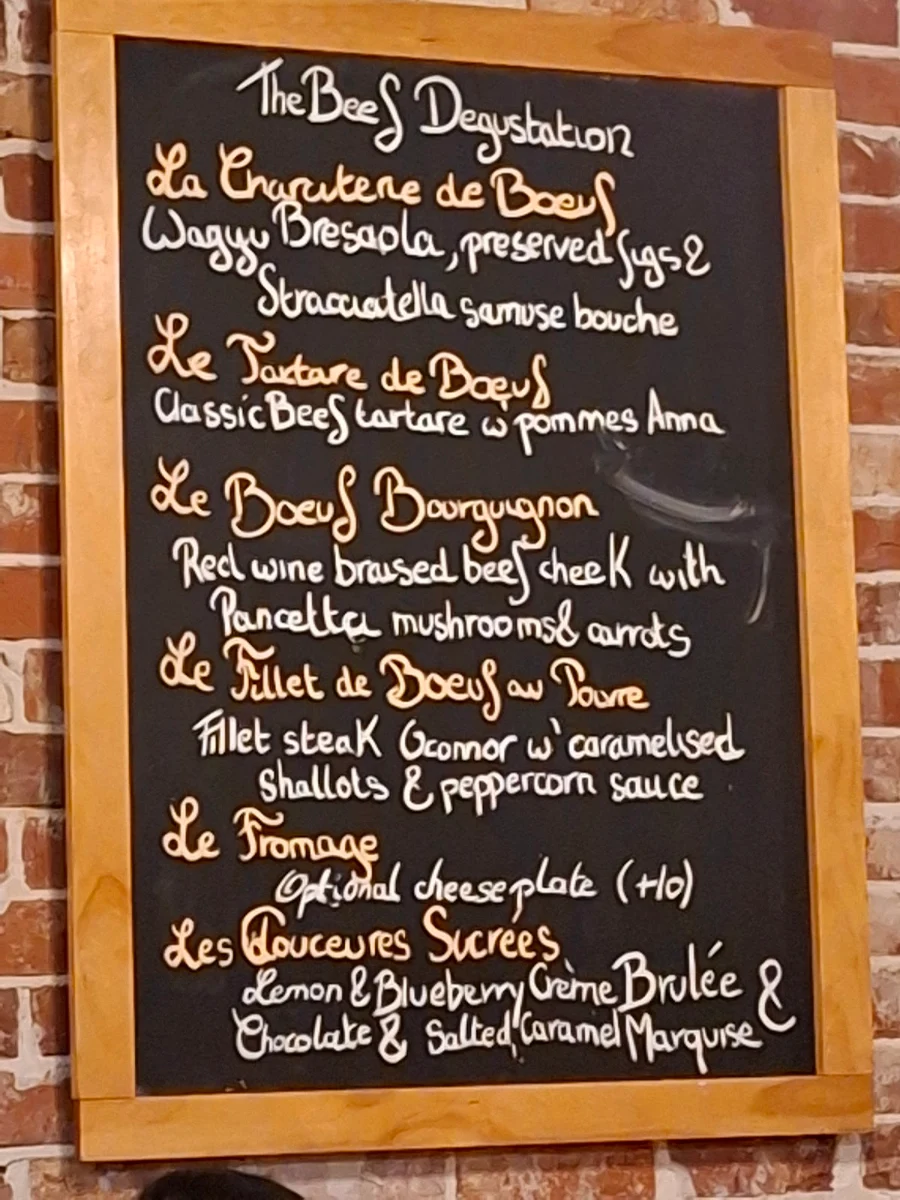 The Beef Degustation
La Charcuterie de Boeuf
Wagyu Bresaola, preserved figs &
Stracciatella samuse bouche
Le Tartare de Boeuf
Classic Beef tartare w' pommes Anna
Le Boeuf Bourguignon
Red wine braised beef cheek with
Pancetta mushrooms & carrots
Le Fillet de Boeuf au Poivre
Fillet steak Oconnor w' caramelised
Shallots & peppercorn sauce
Le Fromage
Optional cheese plate (+10)
Les Douceures Sucrées
Lemon & Blueberry Crème Brulée &
Chocolate & Salted Caramel Marquise